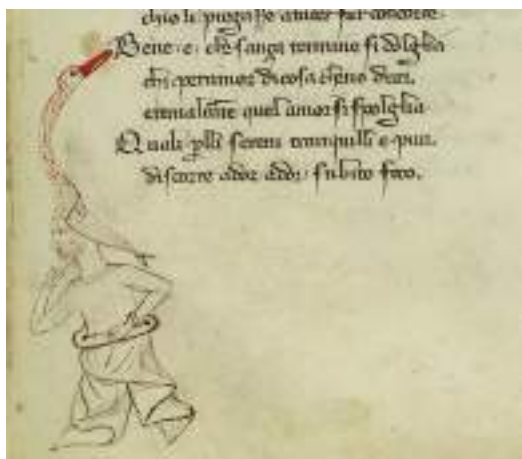 chio li pregasse atacer fur concorde.
Bene · e · che sanza termine si doglia
chi peramor di cosa che no duri.
eternalmte quel amor si spoglia
Quale plli sereni tranquilli e puri.
discorre ador ador · subito foco.